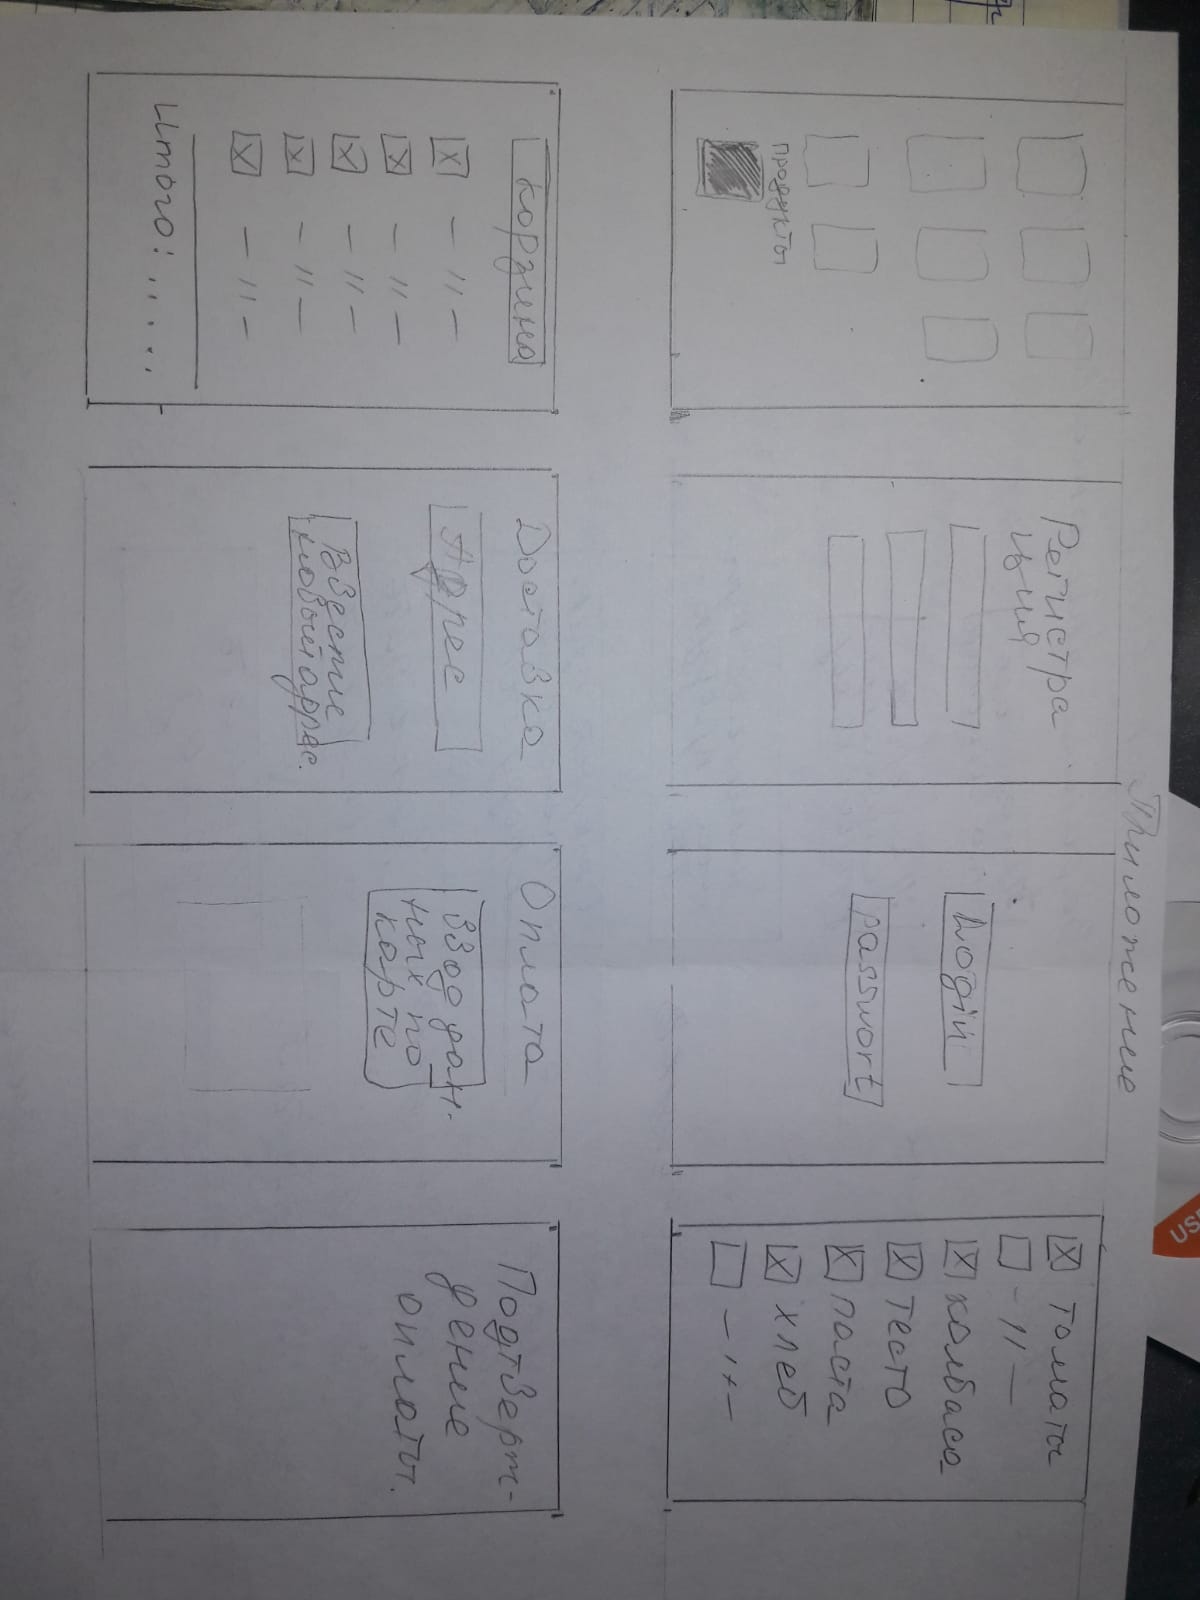 Приложение
продукты
Регистра
ция
Login
passwort
томаты
- " -
колбаса
тесто
паста
хлеб
- " -
корзина
- " -
- " -
- " -
- " -
- " -
Итого: . . . . .
Доставка
Адрес
Ввести
новый адрес.
Оплата
Ввод дан-
ных по
карте
Подтверж-
дение
оплаты.
USE